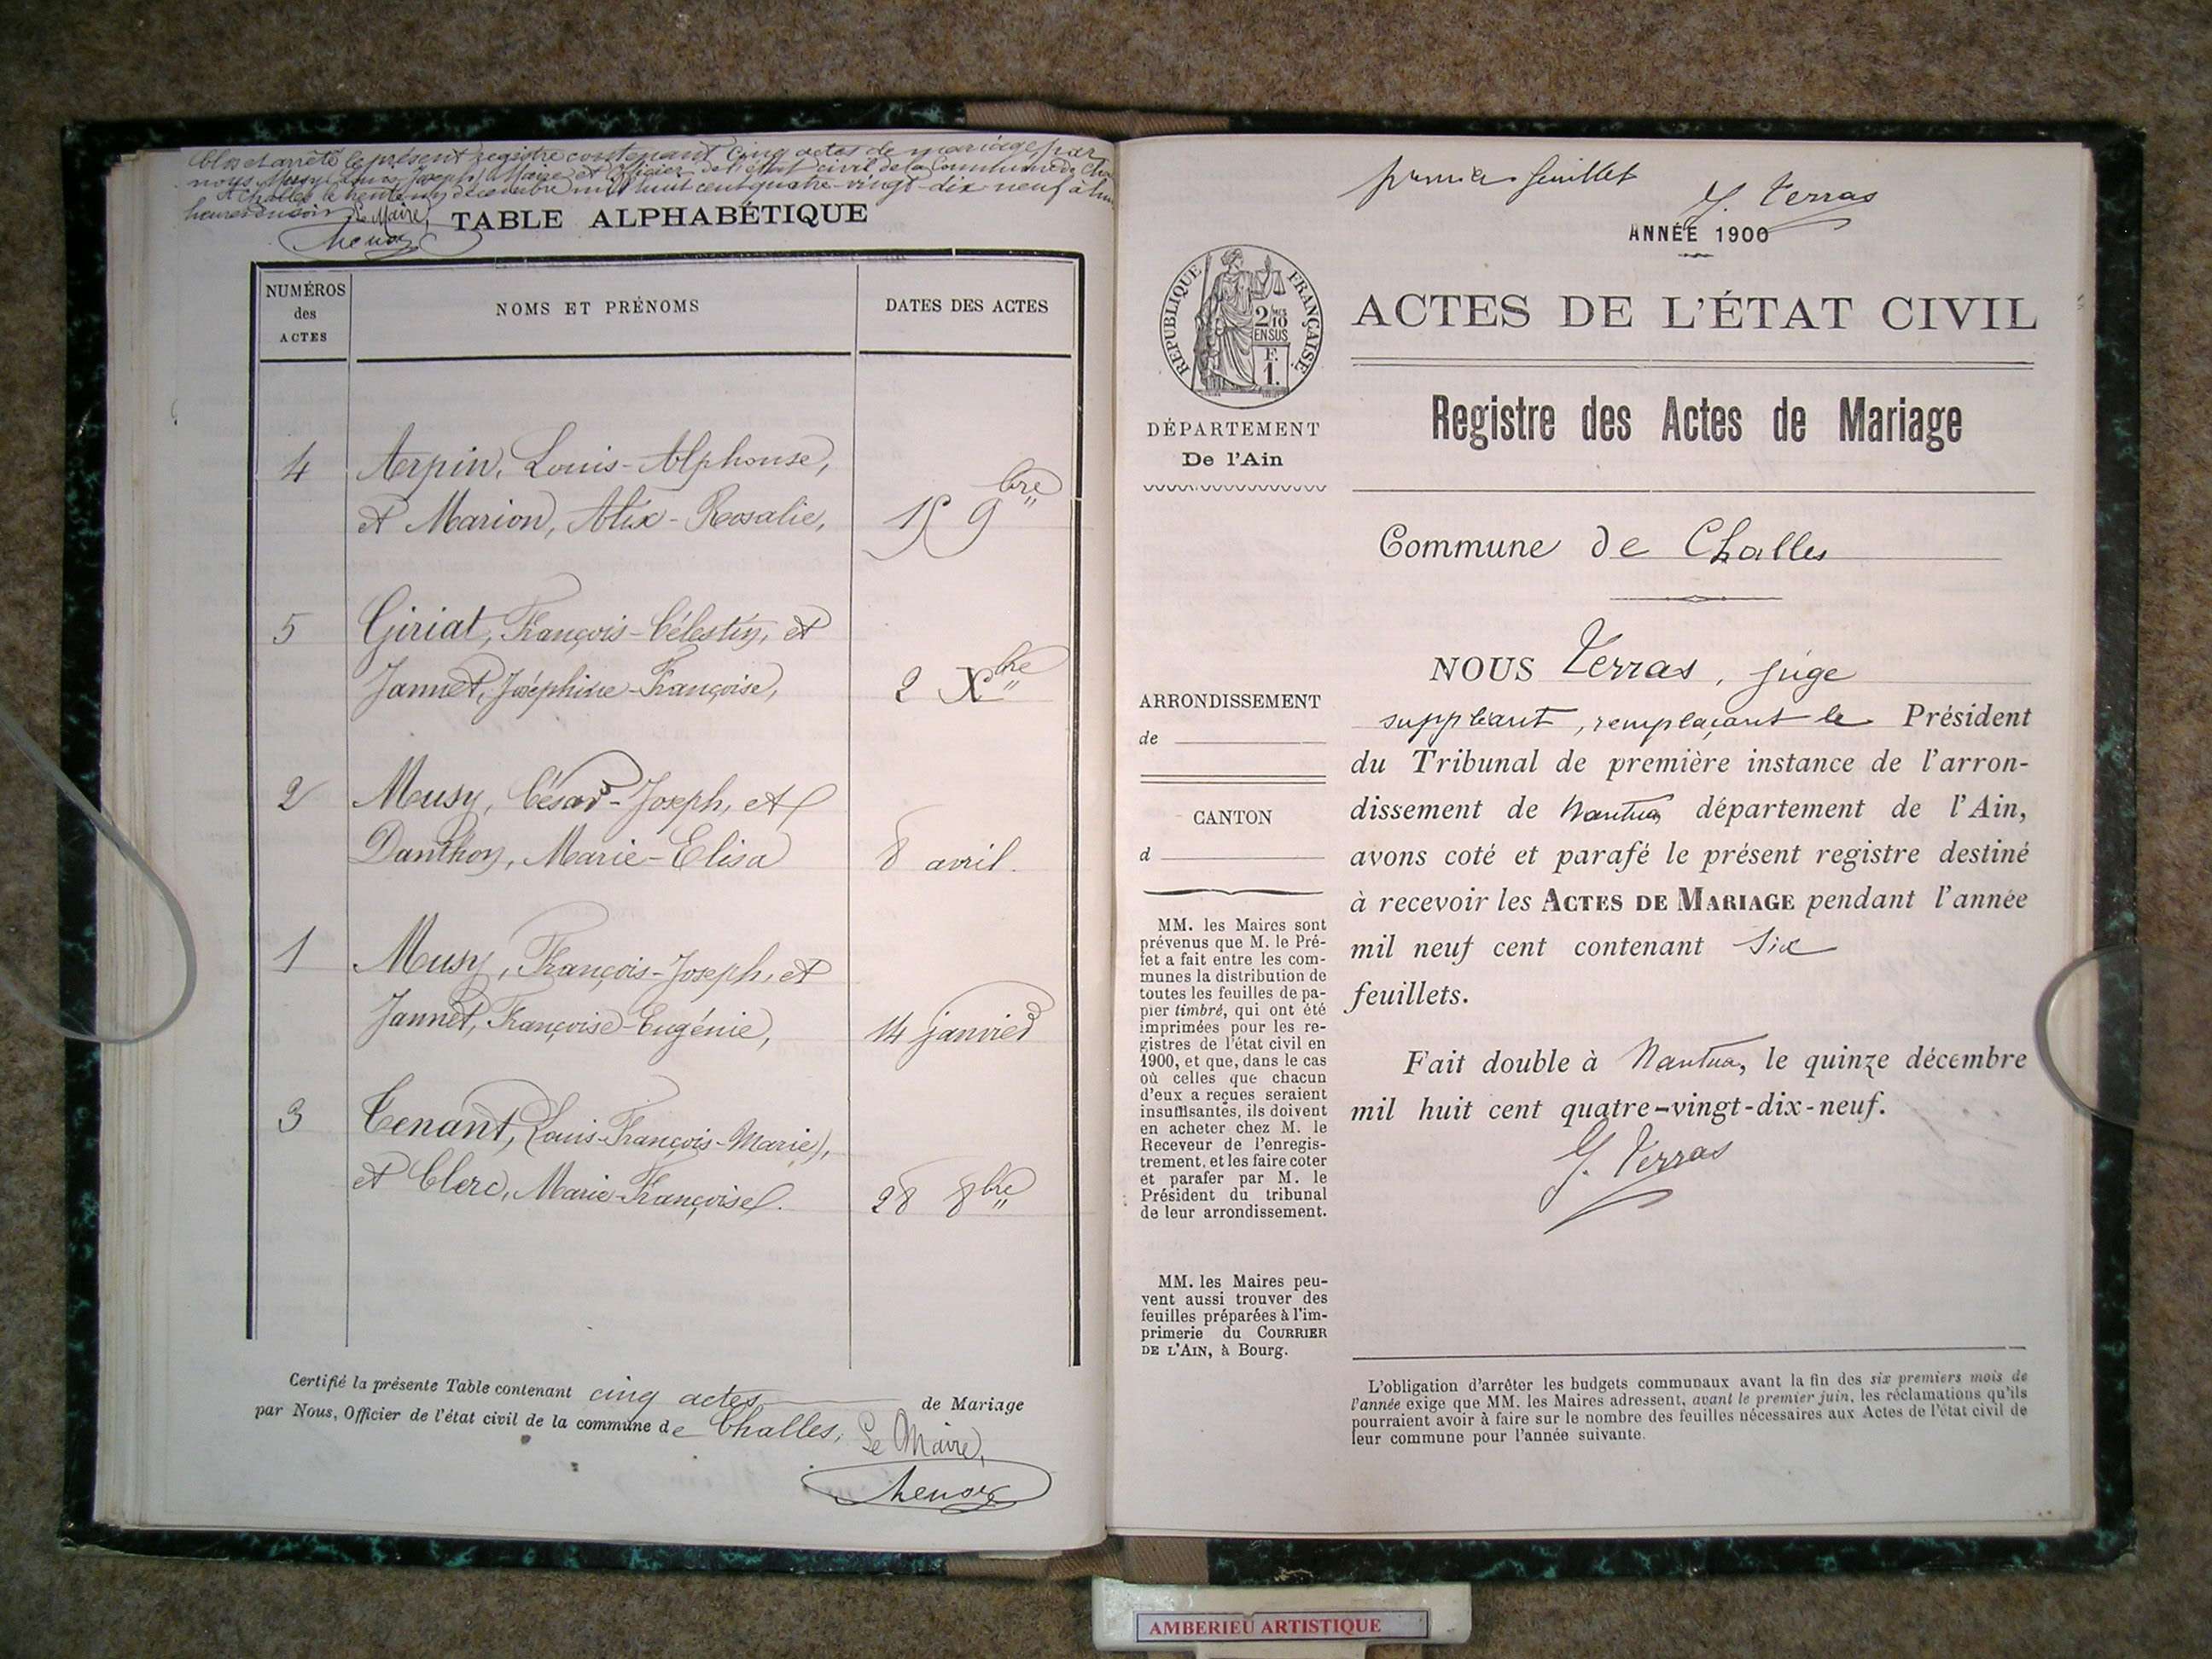 Clos et arrêté le présent registre contenant cinq actes de mariage, par
nous Musy Louis Joseph, Maire et Officier de l'état civil de la Commune de
A Challes le trente un décembre mil huit cent quatre-vingt-dix neuf à
heures du soir Le Maire,
TABLE ALPHABÉTIQUE
NUMÉROS
des
ACTES
NOMS ET PRÉNOMS
DATES DES ACTES
4 Arpin, Louis-Alphonse,
et Marion, Alix-Rosalie, 15 9bre
5 Giriat, François-Célestin, et
Jannet, Joséphine-Françoise, 2 Xbre
2 Musy, César-Joseph, et
Danthon, Marie-Elisa 8 avril.
1 Musy, François-Joseph, et
Jannet, Françoise-Eugénie, 14 janvier
3 Tenant, Louis-François-Marie,
et Clerc, Marie-Françoise. 28 8bre
Certifié la présente Table contenant cinq actes de Mariage
par Nous, Officier de l'état civil de la commune de Challes,
Le Maire,
premier feuillet
J. Verras
ANNÉE 1900
RÉPUBLIQUE FRANÇAISE
2/10
EN SUS
F.
1.
ACTES DE L'ÉTAT CIVIL
Registre des Actes de Mariage
DÉPARTEMENT
De l'Ain
Commune de Challes
ARRONDISSEMENT
de
CANTON
d
MM. les Maires sont
prévenus que M. le Pré-
fet a fait entre les com-
munes la distribution de
toutes les feuilles de pa-
pier timbré, qui ont été
imprimées pour les re-
gistres de l'état civil en
1900, et que, dans le cas
où celles que chacun
d'eux a reçues seraient
insuffisantes, ils doivent
en acheter chez M. le
Receveur de l'enregis-
trement, et les faire coter
et parafer par M. le
Président du tribunal
de leur arrondissement.
MM. les Maires peu-
vent aussi trouver des
feuilles préparées à l'im-
primerie du COURRIER
DE L'AIN, à Bourg.
NOUS Verras, juge
suppléant, remplaçant le Président
du Tribunal de première instance de l'arron-
dissement de Nantua département de l'Ain,
avons coté et parafé le présent registre destiné
à recevoir les ACTES DE MARIAGE pendant l'année
mil neuf cent contenant six
feuillets.
Fait double à Nantua, le quinze décembre
mil huit cent quatre-vingt-dix-neuf.
J. Verras
L'obligation d'arrêter les budgets communaux avant la fin des six premiers mois de
l'année exige que MM. les Maires adressent, avant le premier juin, les réclamations qu'ils
pourraient avoir à faire sur le nombre des feuilles nécessaires aux Actes de l'état civil de
leur commune pour l'année suivante.
AMBERIEU ARTISTIQUE